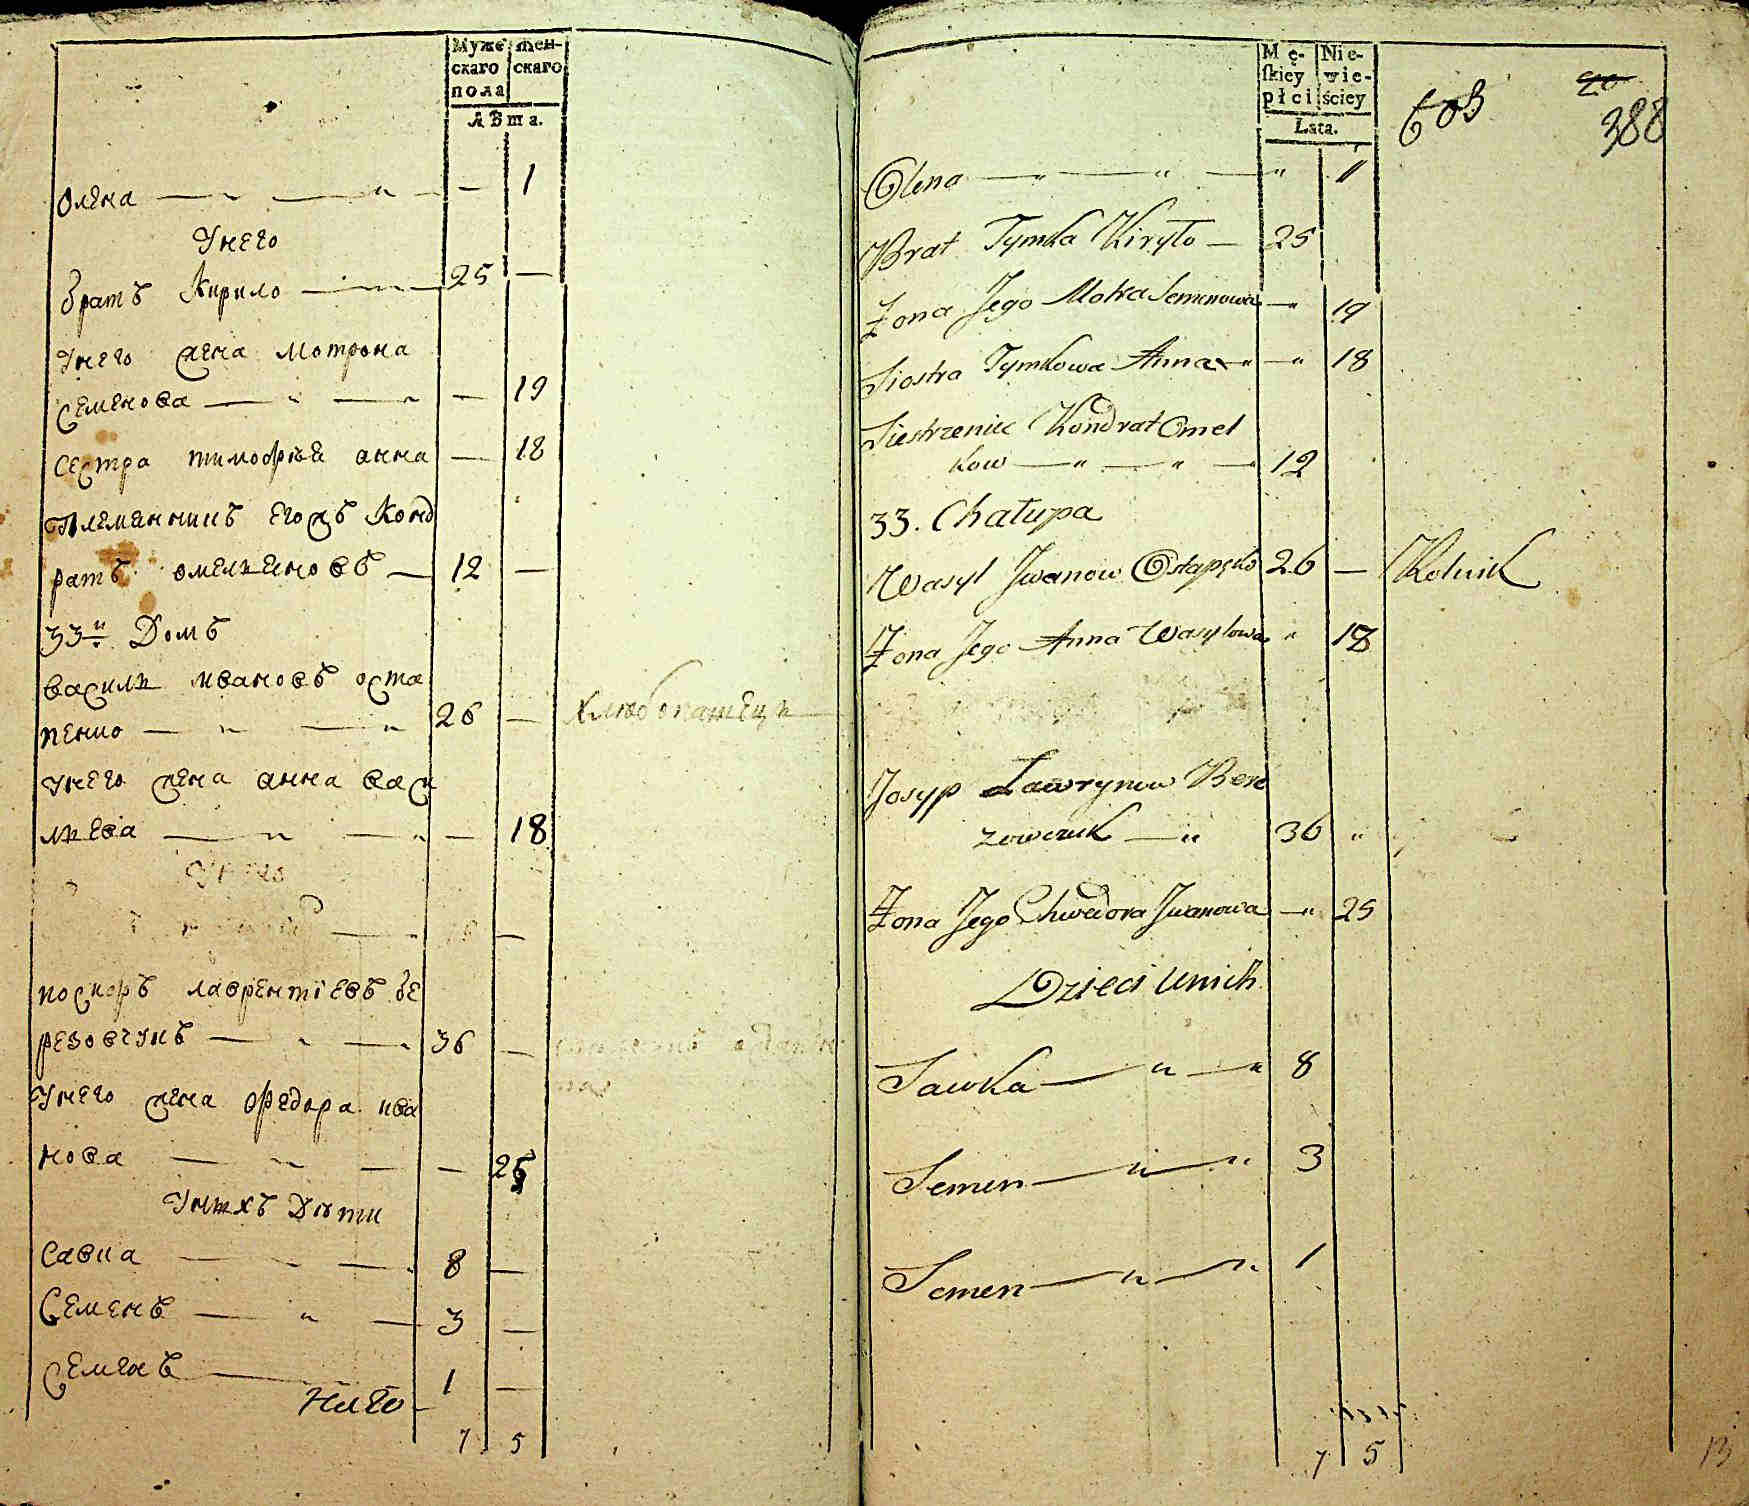 Муже
скаго
пола
жен-
скаго
лѣта.
Олена — „ — „ — — 1
Унего
братъ Кирило — „ — 25 —
Унего жена Мотрона
Семенова — „ — „ — 19
сестра тимофѣя анна — 18
Племянникъ егожъ Конд
ратъ омеляновъ — 12 —
33й Домъ
василй ивановъ оста
пенко — „ — „ 26 — хлѣбопашецъ
Унего жена анна васи
лиева — „ — „ — 18
Унего
иосипъ лаврентіевъ бе
резовчукъ — „ — „ 36 —
Унего жена Ѳедора ива
нова — „ — — 25
Унихъ Дѣти
Савка — „ — 8 —
Семенъ — „ — 3 —
Семенъ — 1 —
Итого
7 5
Mę-
ſkiey
płci
Nie-
wie-
ściey
Lata.
603
20
388
Olena — „ — „ — „ 1
Brat Tymka Kiryło — 25
Żona Jego Motra Semenowa — „ 19
Siostra Tymkowa Anna — „ — „ 18
Siestrzeniec Kondrat Omel
kow — „ — „ — 12
33. Chałupa
Wasyl Jwanow Ostapęko 26 — Rolnik
Żona Jego Anna Wasylowa „ 18
Josyp Ławrynow Bere
zowczuk — „ 36 „
Żona Jego Chwedora Jwanowa — „ 25
Dzieci Unich
Sawka — „ — „ 8
Semen — „ — „ 3
Semen — „ — „ 1
7 5
13